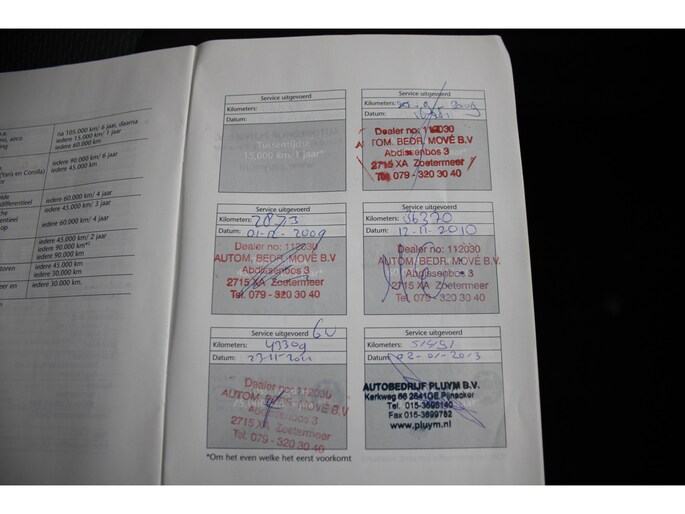 na 105.000 km/ 6 jaar, daarna
iedere 15.000 km/ 1 jaar
iedere 60.000 km
iedere 90.000 km/ 6 jaar
iedere 45.000 km
(Yaris en Corolla)
iedere 60.000 km/ 4 jaar
iedere 60.000 km/ 4 jaar
iedere 45.000 km/ 2 jaar
iedere 90.000 km*¹
iedere 90.000 km
iedere 45.000 km
iedere 30.000 km
iedere 30.000 km.
Service uitgevoerd
Kilometers:
Datum:
Tussentijdse
15.000 km/1 jaar*
Service uitgevoerd
Kilometers:
Datum:
Dealer no: 112030
AUTOM. BEDR. MOVÉ B.V
Abdissenbos 3
2715 XA Zoetermeer
Tel. 079 - 320 30 40
Service uitgevoerd
Kilometers: 2873
Datum: 01-12-2009
Dealer no: 112030
AUTOM. BEDR. MOVÉ B.V
Abdissenbos 3
2715 XA Zoetermeer
Tel. 079 - 320 30 40
Service uitgevoerd
Kilometers: 36370
Datum: 12-11-2010
Dealer no: 112030
AUTOM. BEDR. MOVÉ B.V
Abdissenbos 3
2715 XA Zoetermeer
Tel. 079 - 320 30 40
Service uitgevoerd
Kilometers: 43309
Datum: 23-11-2011
Dealer no: 112030
AUTOM. BEDR. MOVÉ B.V
Abdissenbos 3
2715 XA Zoetermeer
Tel. 079 - 320 30 40
Service uitgevoerd
Kilometers: 51491
Datum: 02-01-2013
AUTOBEDRIJF PLUYM B.V.
Kerkweg 66 2641GE Pijnacker
Tel. 015-3695140
Fax 015-3699762
www.pluym.nl
*Om het even welke het eerst voorkomt